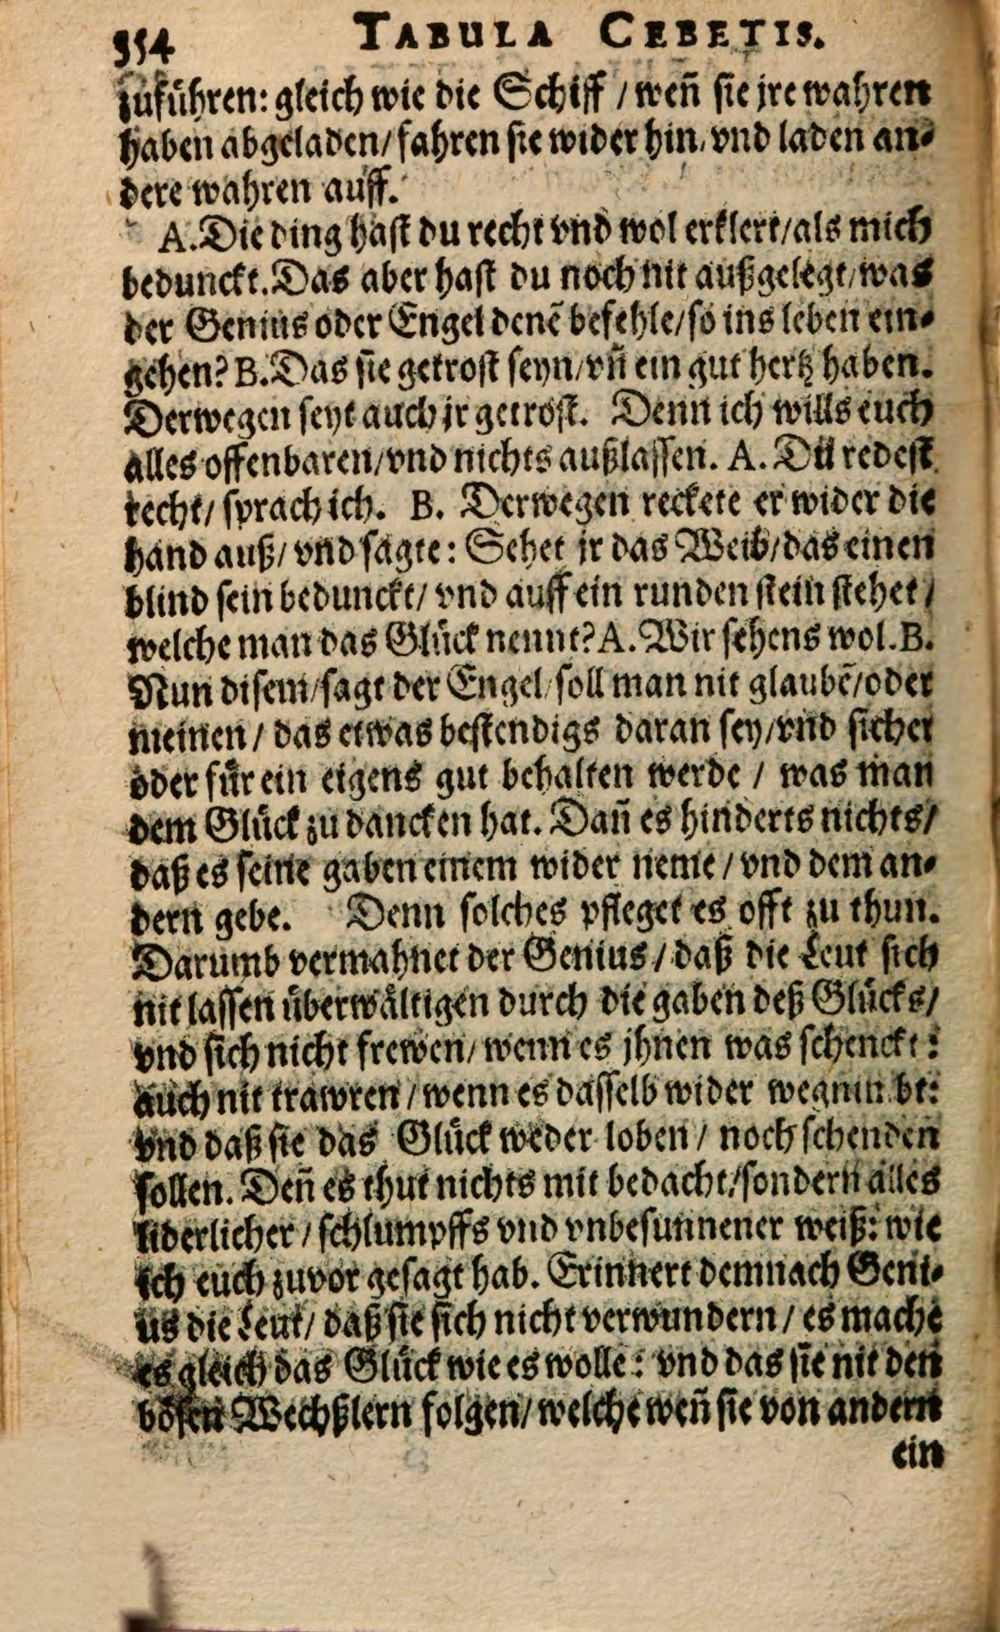 354 TABULA CEBETIS.
zuführen: gleich wie die Schiff / weñ sie jre wahren
haben abgeladen / fahren sie wider hin, vnd laden an-
dere wahren auff.
A. Die ding hast du recht vnd wol erklert / als mich
bedunckt. Das aber hast du noch nit außgelegt / was
der Genius oder Engel denē befehle / so ins leben ein-
gehen? B. Das sie getrost seyn / vñ ein gut hertz haben.
Derwegen seyt auch jr getrost. Denn ich wills euch
alles offenbaren / vnd nichts außlassen. A. Du redest
recht / sprach ich. B. Derwegen reckete er wider die
hand auß / vnd sagte: Sehet jr das Weib / das einen
blind sein bedunckt / vnd auff ein runden stein stehet /
welche man das Glück nennt? A. Wir sehens wol. B.
Nun disem / sagt der Engel / soll man nit glaubē / oder
meinen / das etwas bestendigs daran sey / vnd sicher
oder für ein eigens gut behalten werde / was man
dem Glück zu dancken hat. Dañ es hinderts nichts /
daß es seine gaben einem wider neme / vnd dem an-
dern gebe. Denn solches pfleget es offt zu thun.
Darumb vermahnet der Genius / daß die Leut sich
nit lassen überwältigen durch die gaben deß Glücks /
vnd sich nicht frewen / wenn es jhnen was schenckt:
auch nit trawren / wenn es dasselb wider wegnimbt:
vnd daß sie das Glück weder loben / noch schenden
sollen. Deñ es thut nichts mit bedacht / sondern alles
liderlicher / schlumpffs vnd vnbesunnener weiß: wie
ich euch zuvor gesagt hab. Erinnert demnach Geni-
us die Leut / daß sie sich nicht verwundern / es mache
es gleich das Glück wie es wolle: vnd das sie nit den
bösen Wechßlern folgen / welche weñ sie von andern
ein